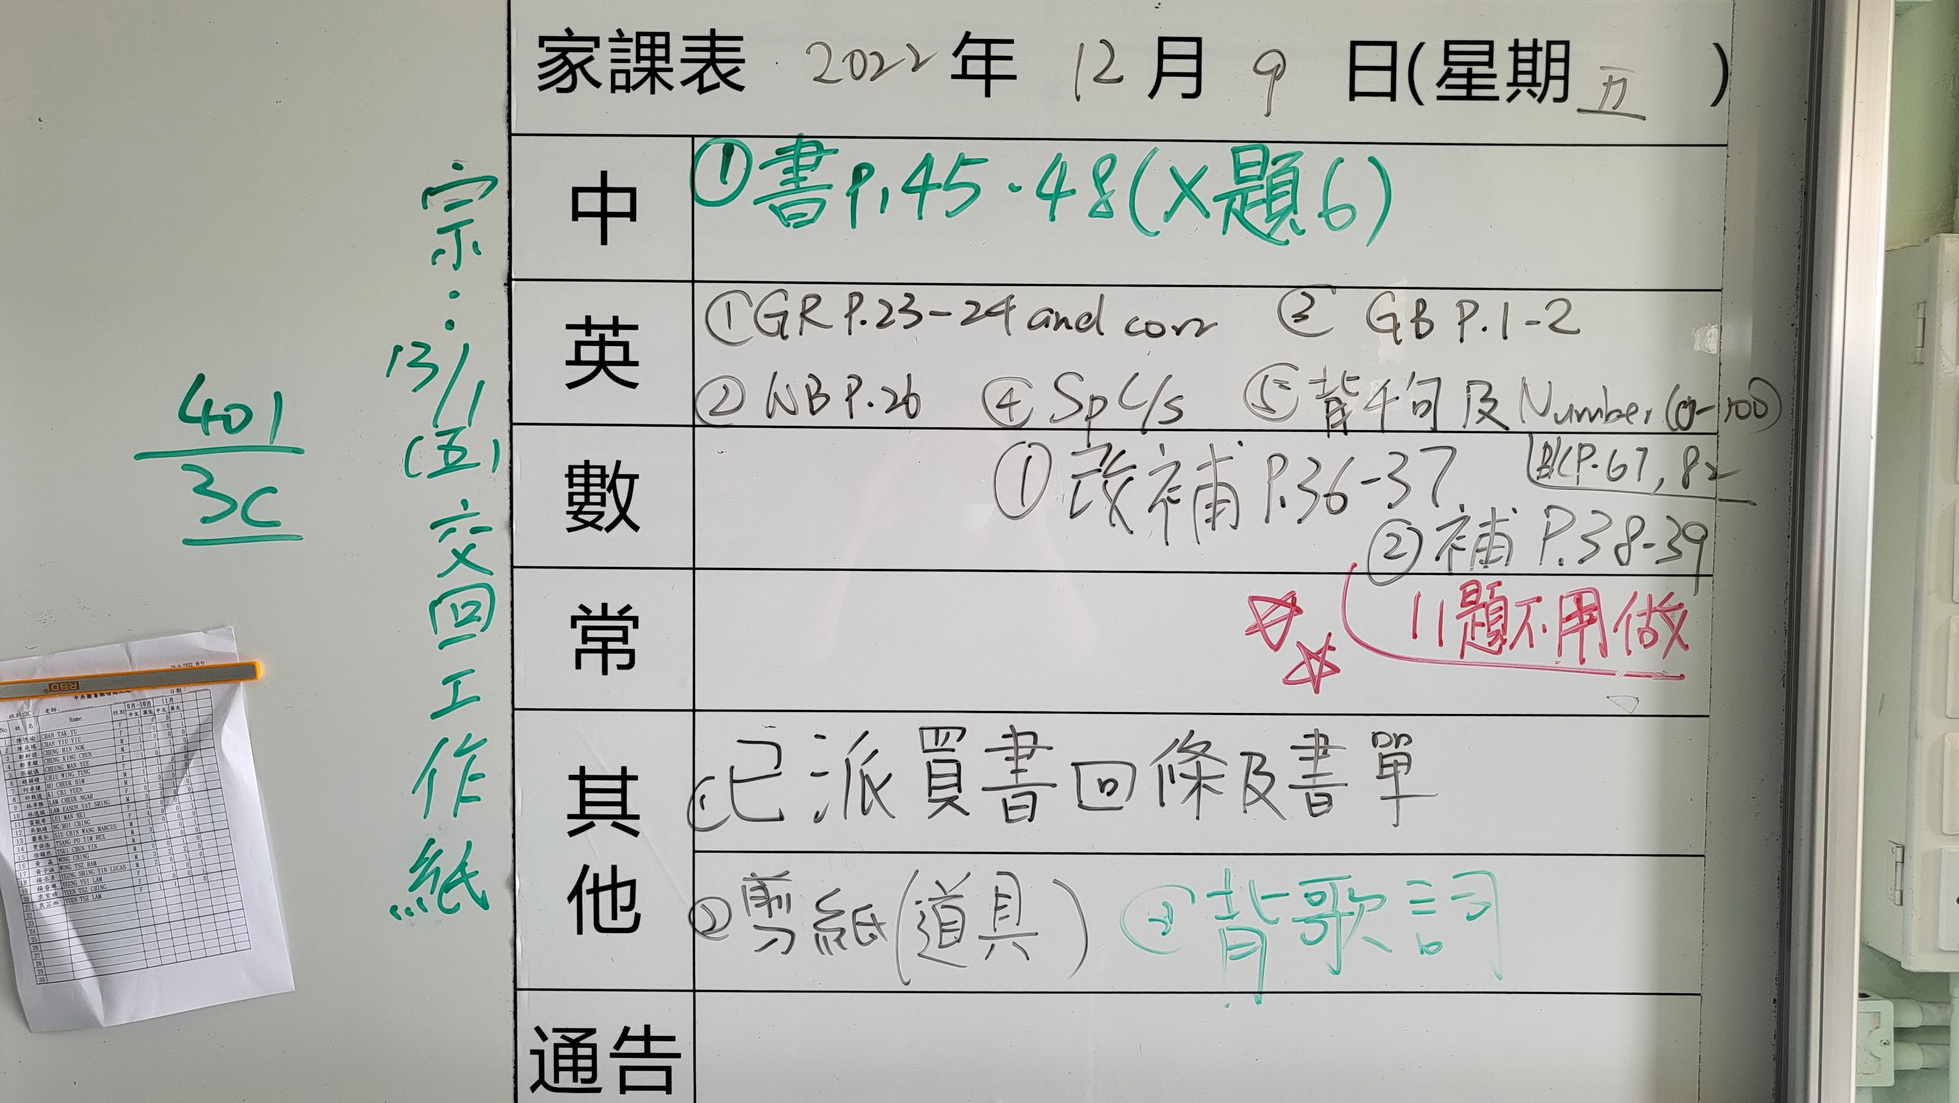 家課表 2022 年 12 月 9 日(星期 五 )
中
①書P.45.48(X題6)
英
①GR P.23-24 and corr ③ GB P.1-2
②WB P.26 ④ Sp C/s ⑤背4句及Number(0-100)
數
①改補P.36-37 BKP.67,82
②補P.38-39
常
11題不用做
其他
①已派買書回條及書單
②剪紙(道具) ③背歌詞
通告
宗:13/1(五)交回工作紙
401
3C
Name
8月-10月 11月
CHAN TAK YU
CHAN YIU YIU
CHENG HIN NOK
CHENG KING CHUN
CHEUNG MAN YEE
CHIU WING TUNG
HO CHEUK HIM
KI CHI YUEN
LAM CHEUK NGAR
LAM EASON YAT SHING
LUI MAN HEI
NG HOI CHING
SIU CHIN WANG MARCUS
TSANG PO TIM REX
TSUI CHUN YIN
WONG CHING
WONG TSZ HAM
YEUNG SHING YIN LUCAS
YEUNG YUI LAM
YUEN TSZ CHING
YUEN TSZ LAM